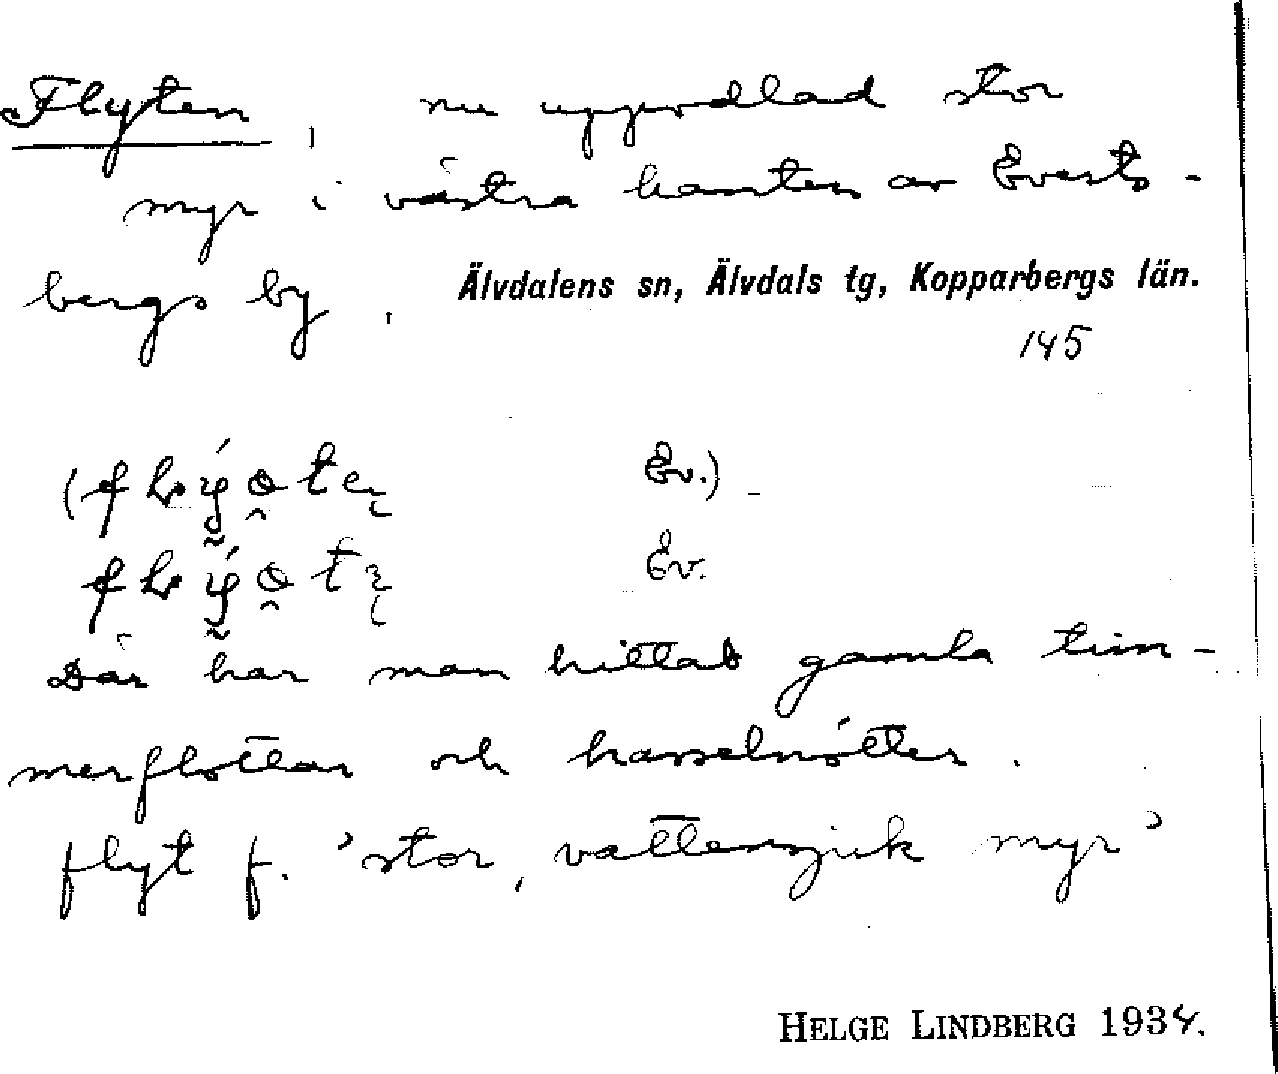 Flyten, nu uppodlad stor
myr i västra kanten av Everts-
bergs by. Älvdalens sn, Älvdals tg, Kopparbergs län.
145
Ev.)
Ev.
Där har man hittat gamla tim-
merflottar och hasselnötter.
flyt f. 'stor, vattensjuk myr'
HELGE LINDBERG 1934.